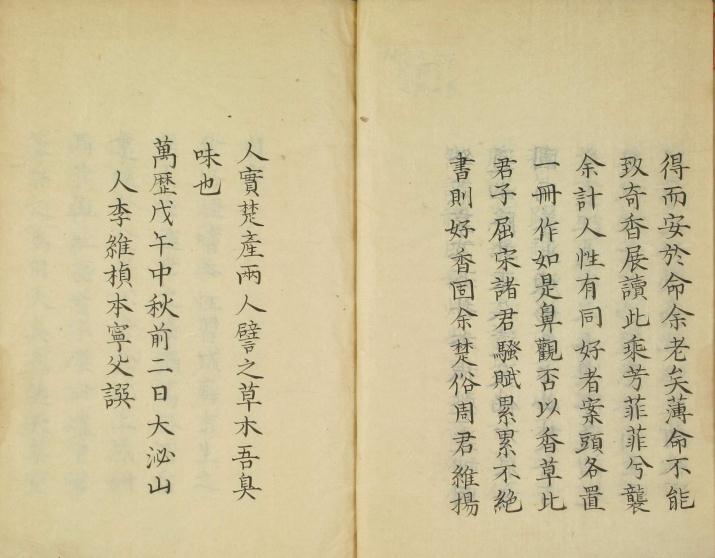 得而安於命余老矣薄命不能
致奇香展讀此乘芳菲菲兮襲
余計人性有同好者案頭各置
一冊作如是鼻觀否以香草比
君子屈宋諸君騷賦累累不絕
書則好香固余楚俗周君維揚
人實楚產兩人譬之草木吾臭
味也
萬歷戊午中秋前二日大泌山
人李維楨本寧父譔